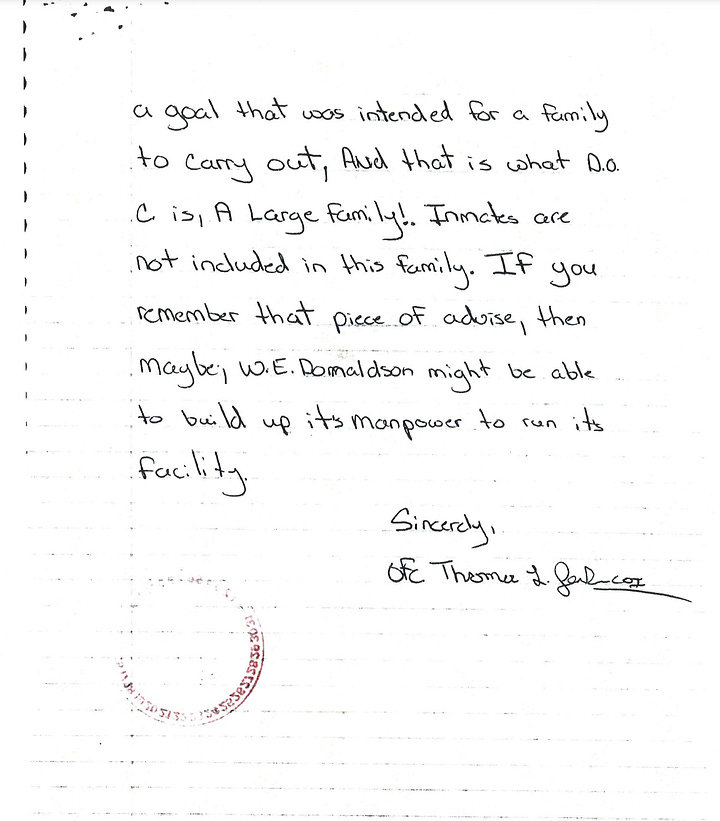 a goal that was intended for a family
to carry out, And that is what D.O.
C is, A Large family!. Inmates are
not included in this family. If you
remember that piece of advise, then
Maybe, W.E. Donaldson might be able
to build up it's manpower to run its
facility.
Sincerely,
Ofc L.